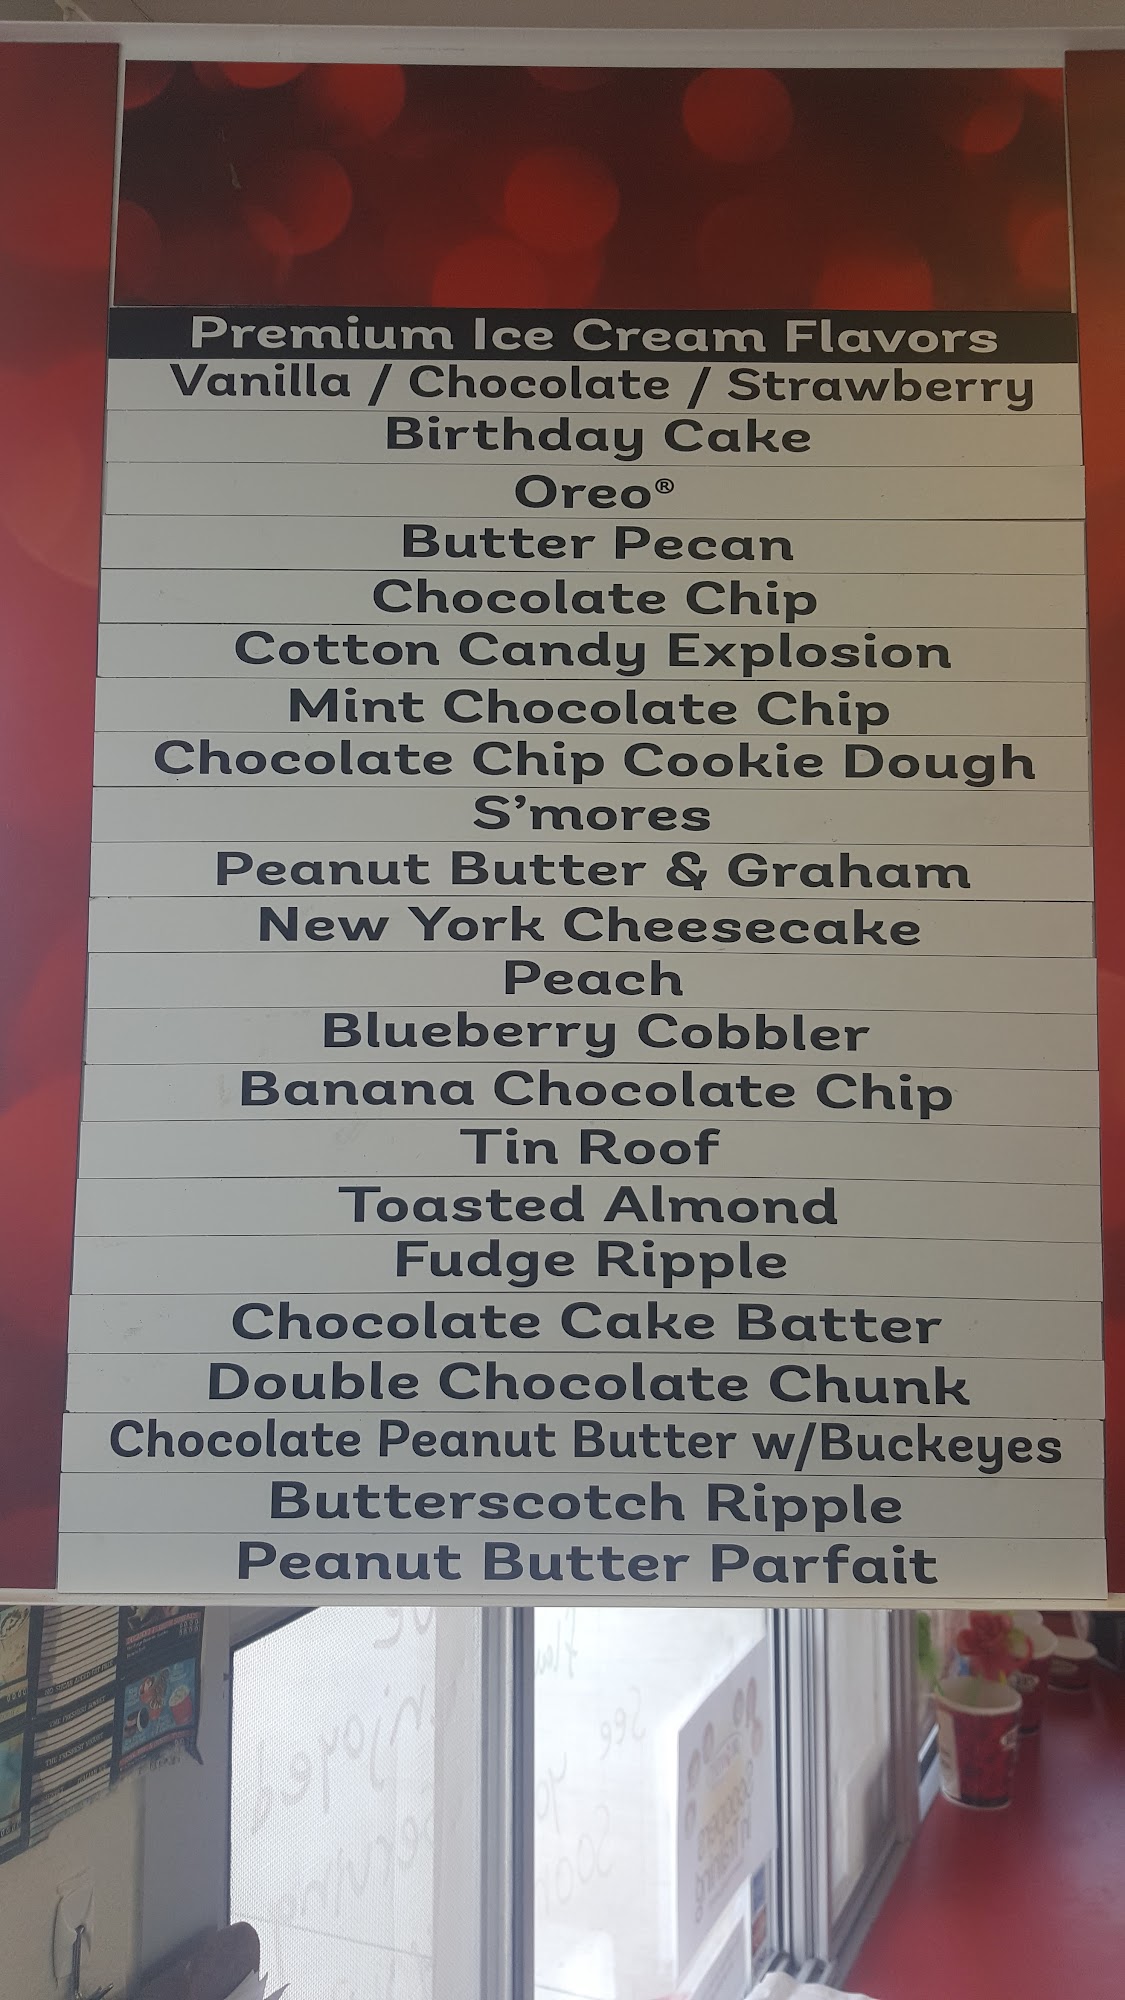 Premium Ice Cream Flavors
Vanilla / Chocolate / Strawberry
Birthday Cake
Oreo®
Butter Pecan
Chocolate Chip
Cotton Candy Explosion
Mint Chocolate Chip
Chocolate Chip Cookie Dough
S'mores
Peanut Butter & Graham
New York Cheesecake
Peach
Blueberry Cobbler
Banana Chocolate Chip
Tin Roof
Toasted Almond
Fudge Ripple
Chocolate Cake Batter
Double Chocolate Chunk
Chocolate Peanut Butter w/Buckeyes
Butterscotch Ripple
Peanut Butter Parfait
enjoyed
serving
See
yo
soon